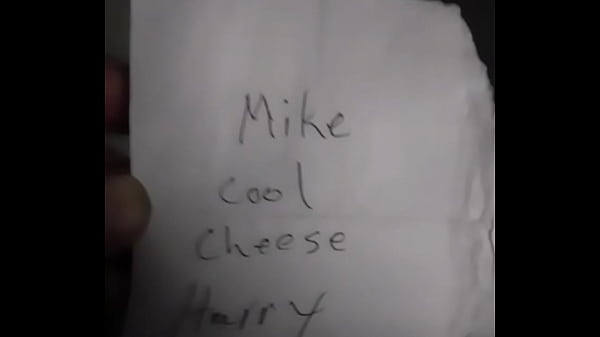 Mike
cool
cheese
Harry